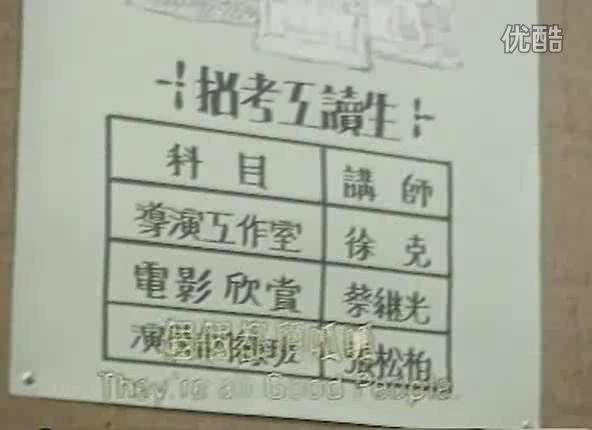 优酷
招考工讀生
科目 講師
導演工作室 徐克
電影欣賞 蔡繼光
演 班 張松柏
They're all Good People.